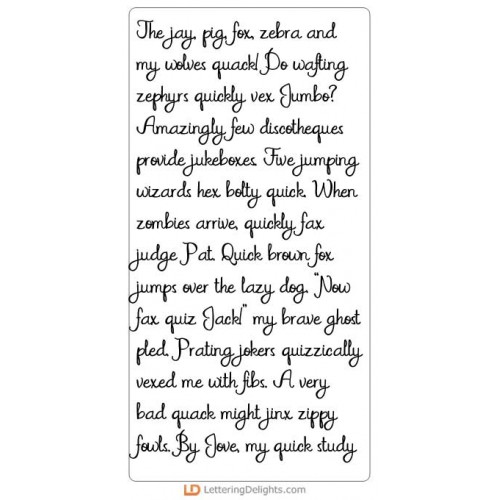 The jay, pig, fox, zebra and
my wolves quack! Do wafting
zephyrs quickly vex Jumbo?
Amazingly few discotheques
provide jukeboxes. Five jumping
wizards hex bolty quick. When
zombies arrive, quickly fax
judge Pat. Quick brown fox
jumps over the lazy dog. "Now
fax quiz Jack!" my brave ghost
pled. Prating jokers quizzically
vexed me with fibs. A very
bad quack might jinx zippy
fowls. By Jove, my quick study
LD LetteringDelights.com